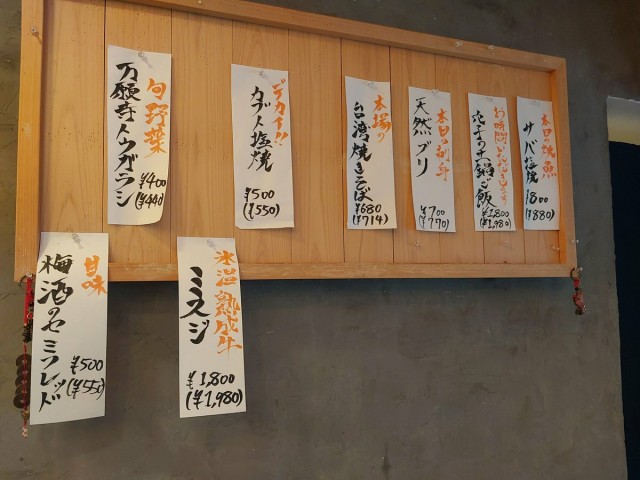 本日の焼魚
サバ塩焼
¥800
(¥880)
お時間いただきます
土鍋ご飯
¥1,800
(¥1,980)
本日の刺身
天然ブリ
¥700
(¥770)
本場の
台湾焼きそば
¥680
(¥714)
デカイ!!
カブト塩焼
¥500
(¥550)
旬野菜
万願寺トウガラシ
¥400
(¥440)
氷温熟成牛
ミスジ
¥1,800
(¥1,980)
甘味
梅酒のセミフレッド
¥500
(¥550)